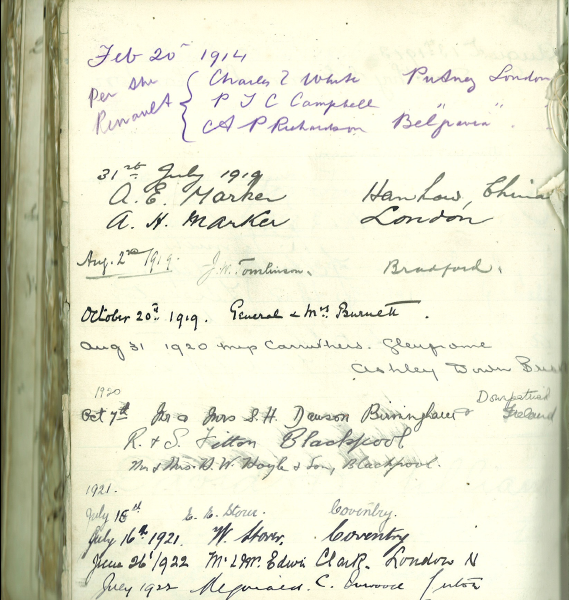 Feb 20 1914
Per She Renault { Charles E White Putney London
P J C Campbell
C A P Richardson Belgravia".
31st July 1919
A. E. Marker Hankow, China
A. H. Marker London
Aug. 2nd/1919. J. W. Tomlinson. Bradford.
October 20th 1919. General & Mrs Burnett.
Aug 31 1920 Carruthers. Glenfame
Ashley Down
1920 Downpatrick
Oct 7th Mr & Mrs S. H. Dawson Birmingham Ireland
R. & S. Fitton Blackpool
Mr & Mrs. H. W. Hoyle & Son, Blackpool.
1921.
July 15th E. E. Storer. Coventry.
July 16th 1921. W. Storer, Coventry
June 26th/1922 Mr & Mrs Edwin Clark. London N
July 1922 C.